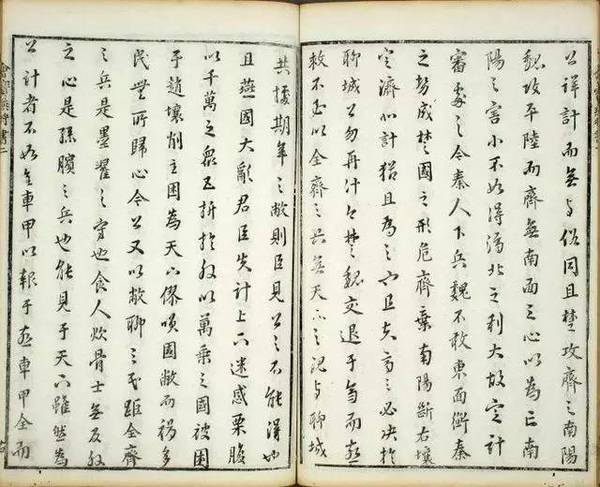 公詳計而無与俗同且楚攻齊之南陽
魏攻平陸而齊無南面之心以為亡南
陽之害小不如得濟北之利大故定計
審處之今秦人下兵魏不敢東面衡秦
之勢成楚國之形危齊棄南陽斷右壤
定濟北計猶且為之也且夫齊之必決於
聊城公勿再計今楚魏交退于齊而燕
救不至以全齊之兵無天下之規与聊城
共據期年之敝則臣見公之不能得也
且燕國大亂君臣失計上下迷惑栗腹
以千萬之眾五折於外以萬乘之國被圍
于趙壤削主困為天下僇 國敝而禍多
民無所歸心今公又以敝聊之民距全齊
之兵是墨翟之守也食人炊骨士無反外
之心是孫臏之兵也能見于天下雖然為
公計者不如全車甲以報于燕車甲全而